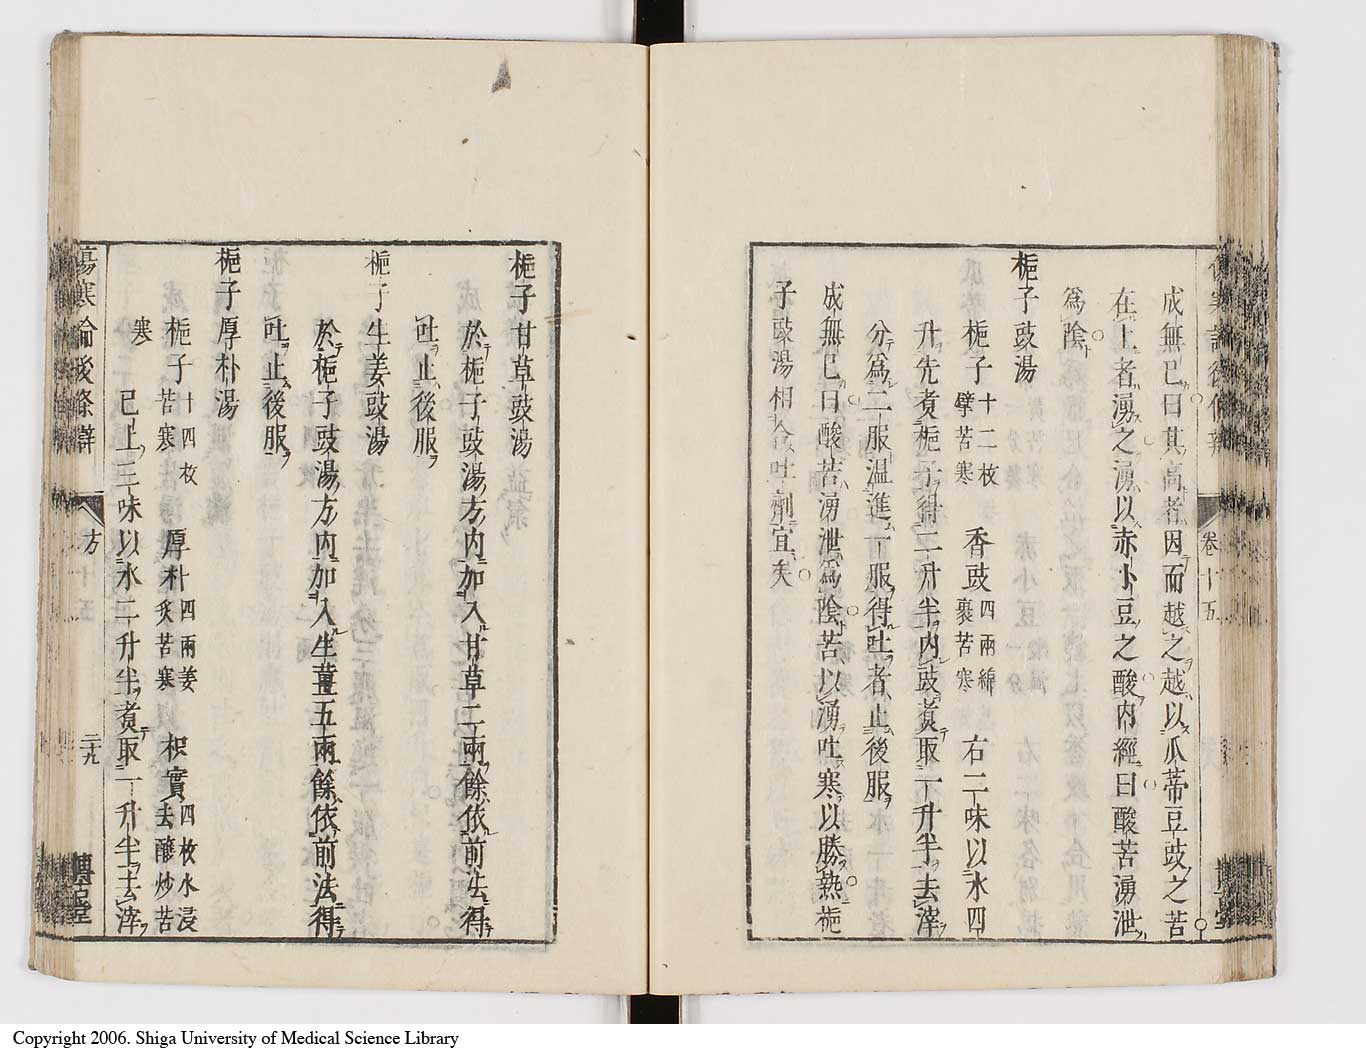 成無已曰其高者因而越之越以瓜蒂豆豉之苦
在上者湧之湧以赤小豆之酸内經曰酸苦湧泄
爲陰
梔子豉湯
梔子十二枚擘苦寒 香豉四兩綿裹苦寒 右二味以水四
升先煮梔子得二升半内豉煮取一升半去滓
分爲二服温進一服得吐者止後服
成無已曰酸苦湧泄爲陰苦以湧吐寒以勝熱梔
子豉湯相合吐劑宜矣
卷十五
梔子甘草豉湯
於梔子豉湯方内加入甘草二兩餘依前法得
吐止後服
梔子生姜豉湯
於梔子豉湯方内加入生薑五兩餘依前法得
吐止後服
梔子厚朴湯
梔子十四枚苦寒 厚朴四兩姜炙苦寒 枳實四枚水浸去穰炒苦
寒 已上三味以水二升半煮取一升半去滓
傷寒論後條辯 方 二十九 博古堂
Copyright 2006. Shiga University of Medical Science Library